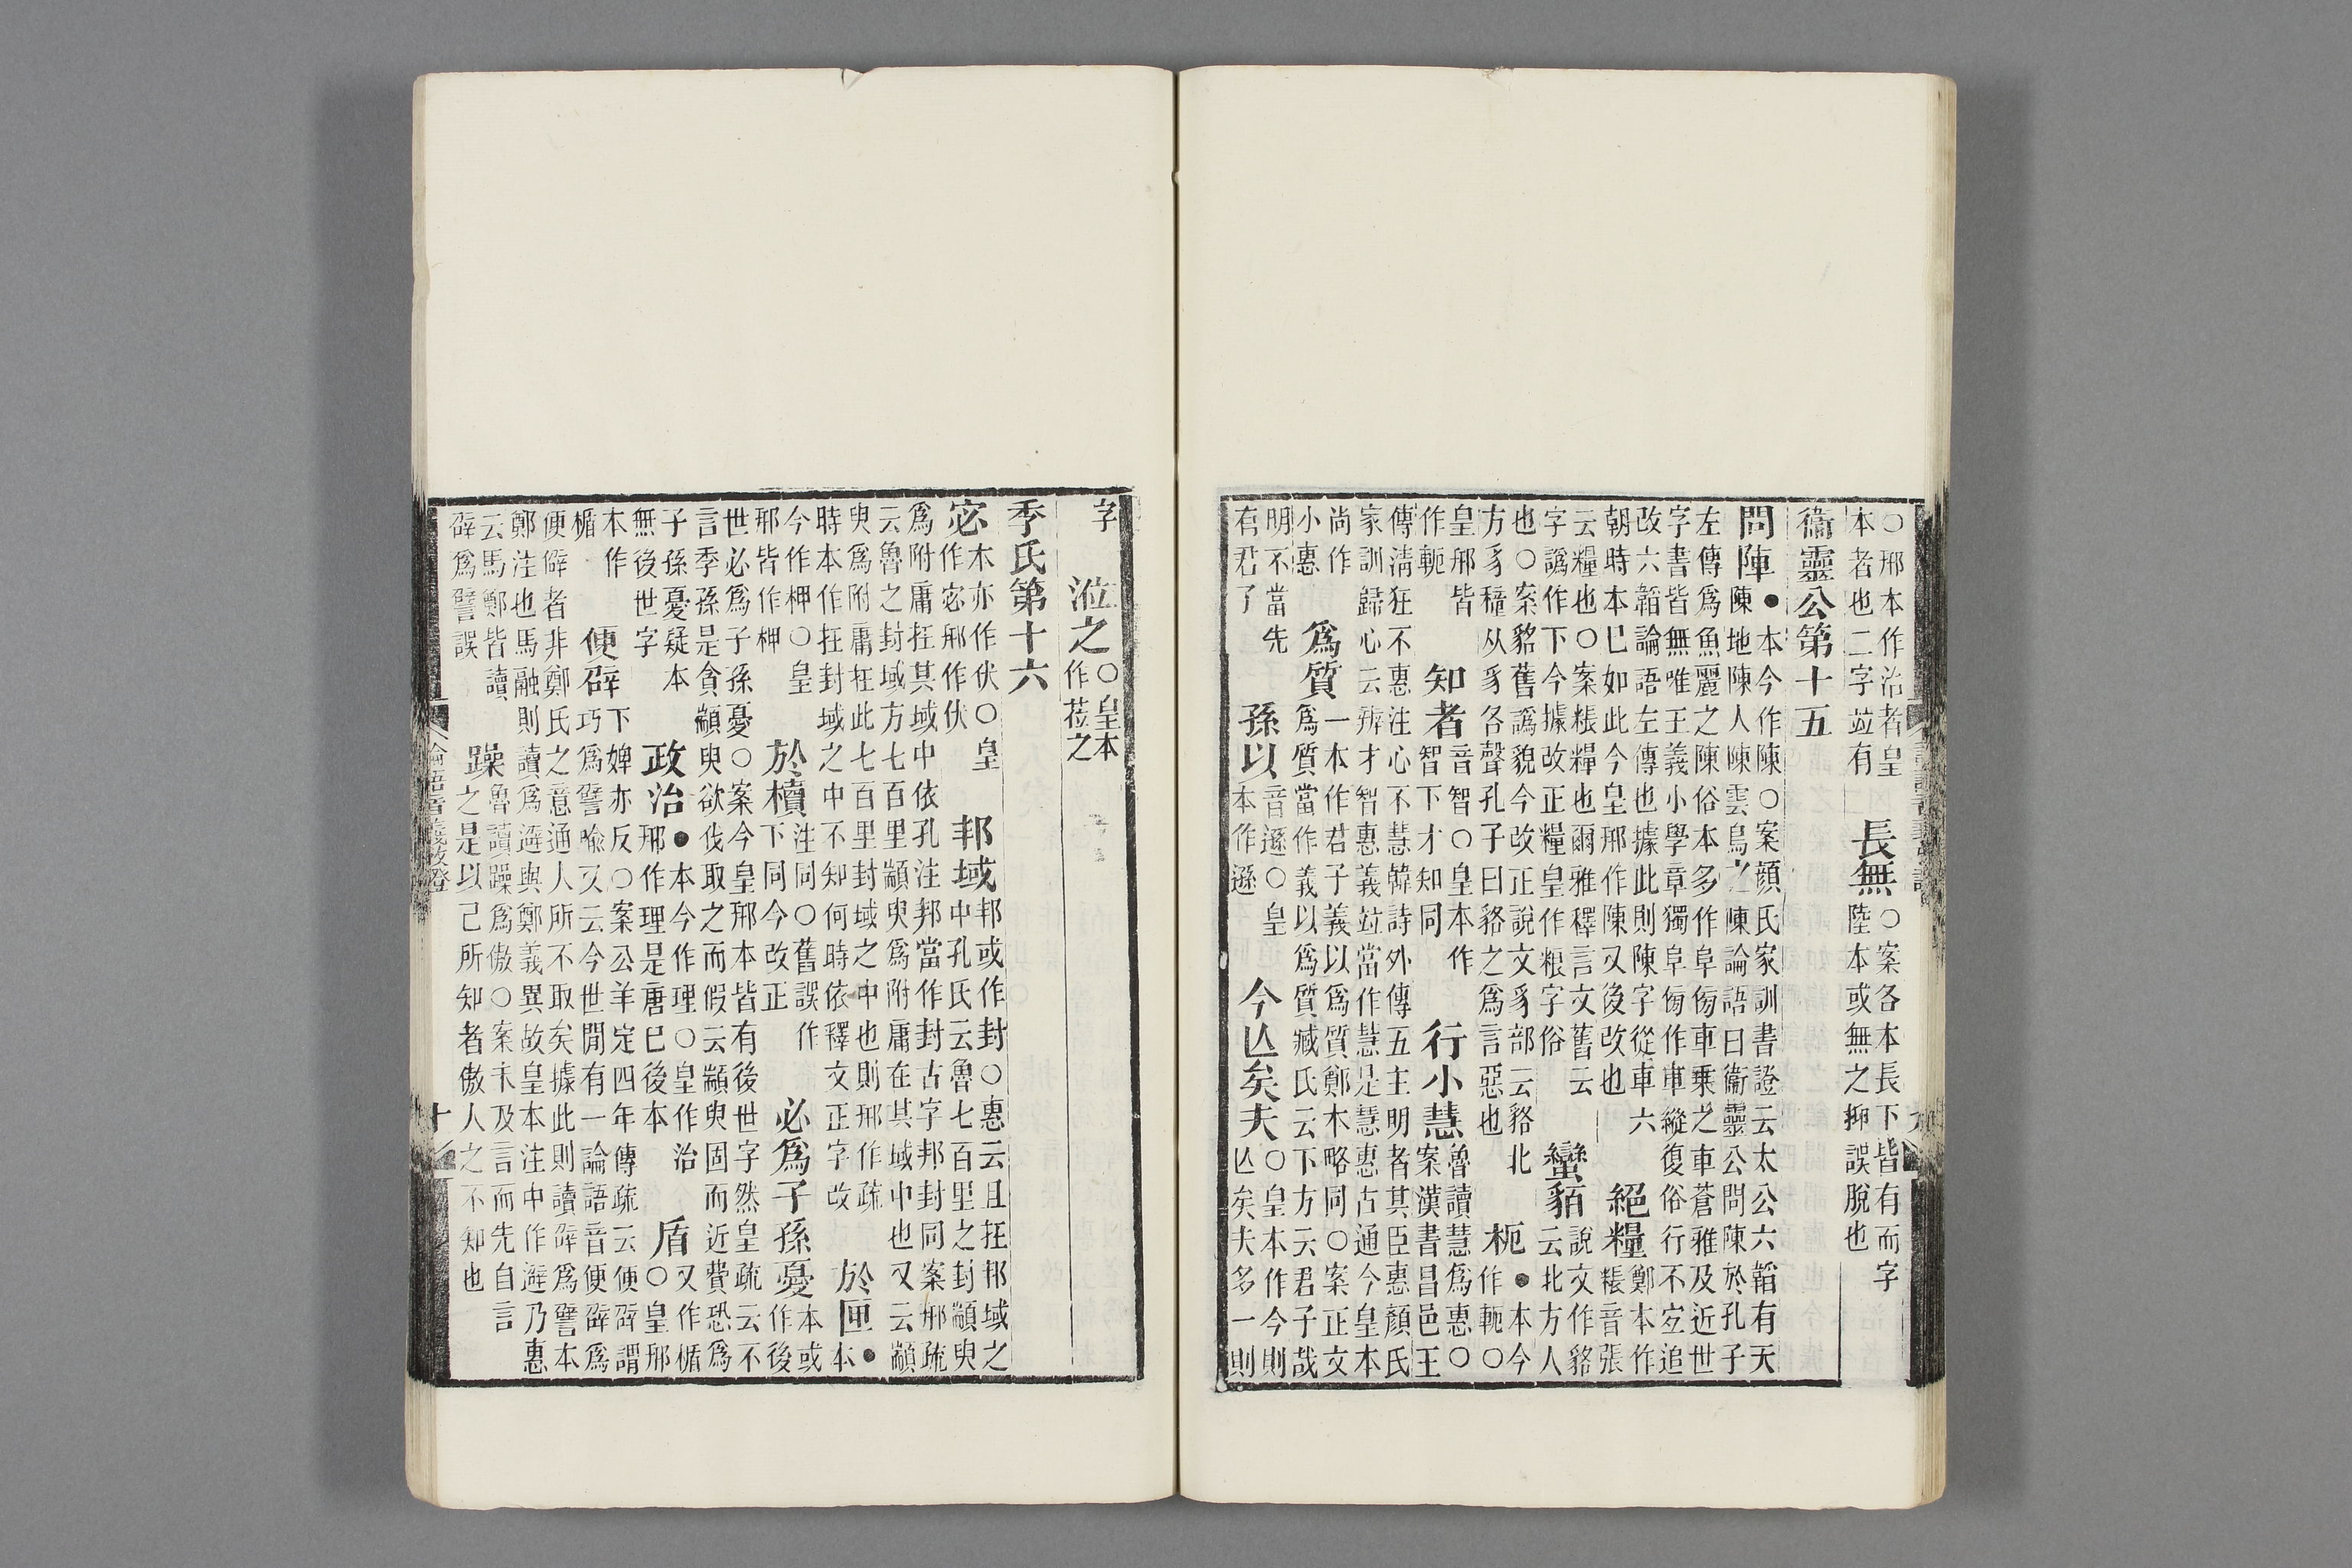 ○邢本作治者皇
本者也二字竝有
長無
○案各本長下皆有而字
陸本或無之抑誤脫也
衞靈公第十五
問陣
●本今作陳○案顏氏家訓書證云太公六韜有天
陳地陳人陳雲鳥之陳論語曰衞靈公問陳於孔子
左傳爲魚麗之陳俗本多作阜傍車乘之車蒼雅及近世
字書皆無唯王義小學章獨阜傍作車縱復俗行不宐追
改六韜論語左傳也據此則陳字從車六
朝時本已如此今皇邢作陳又後改也
絕糧
鄭本作
粻音張
云糧也○案粻糧也爾雅釋言文舊云
字譌作下今據改正糧皇作粮字俗
蠻貊
說文作貉
云北方人
也○案貉舊譌貌今改正說文豸部云貉北
方豸穜从豸各聲孔子曰貉之爲言惡也
枙
●本今
作軶○
皇邢皆
作軶
知者
音智○皇本作
智下才知同
行小慧
魯讀慧爲惠○
案漢書昌邑王
傳淸狂不惠注心不慧韓詩外傳五主明者其臣惠顏氏
家訓歸心云辨才智惠義竝當作慧是慧惠古通今皇本
尚作
小惠
爲質
一本作君子義以爲質鄭本略同○案正文
爲質當作義以爲質臧氏云下方云君子哉
明不當先
有君子
孫以
音遜○皇
本作遜
今亾矣夫
○皇本作今則
亾矣夫多一則
字
涖之
○皇本
作莅之
季氏第十六
宓
本亦作伏○皇
作宓邢作伏
邦域
邦或作封○惠云且在邦域之
中孔氏云魯七百里之封顓臾
爲附庸在其域中依孔注邦當作封古字邦封同案邢疏
云魯之封域方七百里顓臾爲附庸在其域中也又云顓
臾爲附庸在此七百里封域之中也則邢作疏
時本作在封域之中不知何時依釋文正字改
於匣
●本
今作柙○皇
邢皆作柙
於櫝
注同○舊誤作
下同今改正
必爲子孫憂
本或
作後
世必爲子孫憂○案今皇邢本皆有後世字然皇疏云不
言季孫是貪顓臾欲伐取之而假云顓臾固而近費恐爲
子孫憂疑本
無後世字
政治
●本今作理○皇作治
邢作理是唐已後本
盾
又作楯
○皇邢
本作
楯
便辟
下婢亦反○案公羊定四年傳疏云便辟謂
巧爲譬喻又云今世閒有一論語音便辟爲
便僻者非鄭氏之意通人所不取矣據此則讀辟爲譬本
鄭注也馬融則讀爲避與鄭義異故皇本注中作避乃惠
云馬鄭皆讀
辟爲譬誤
躁
魯讀躁爲傲○案未及言而先自言
之是以己所知者傲人之不知也
論語音義攷證
十